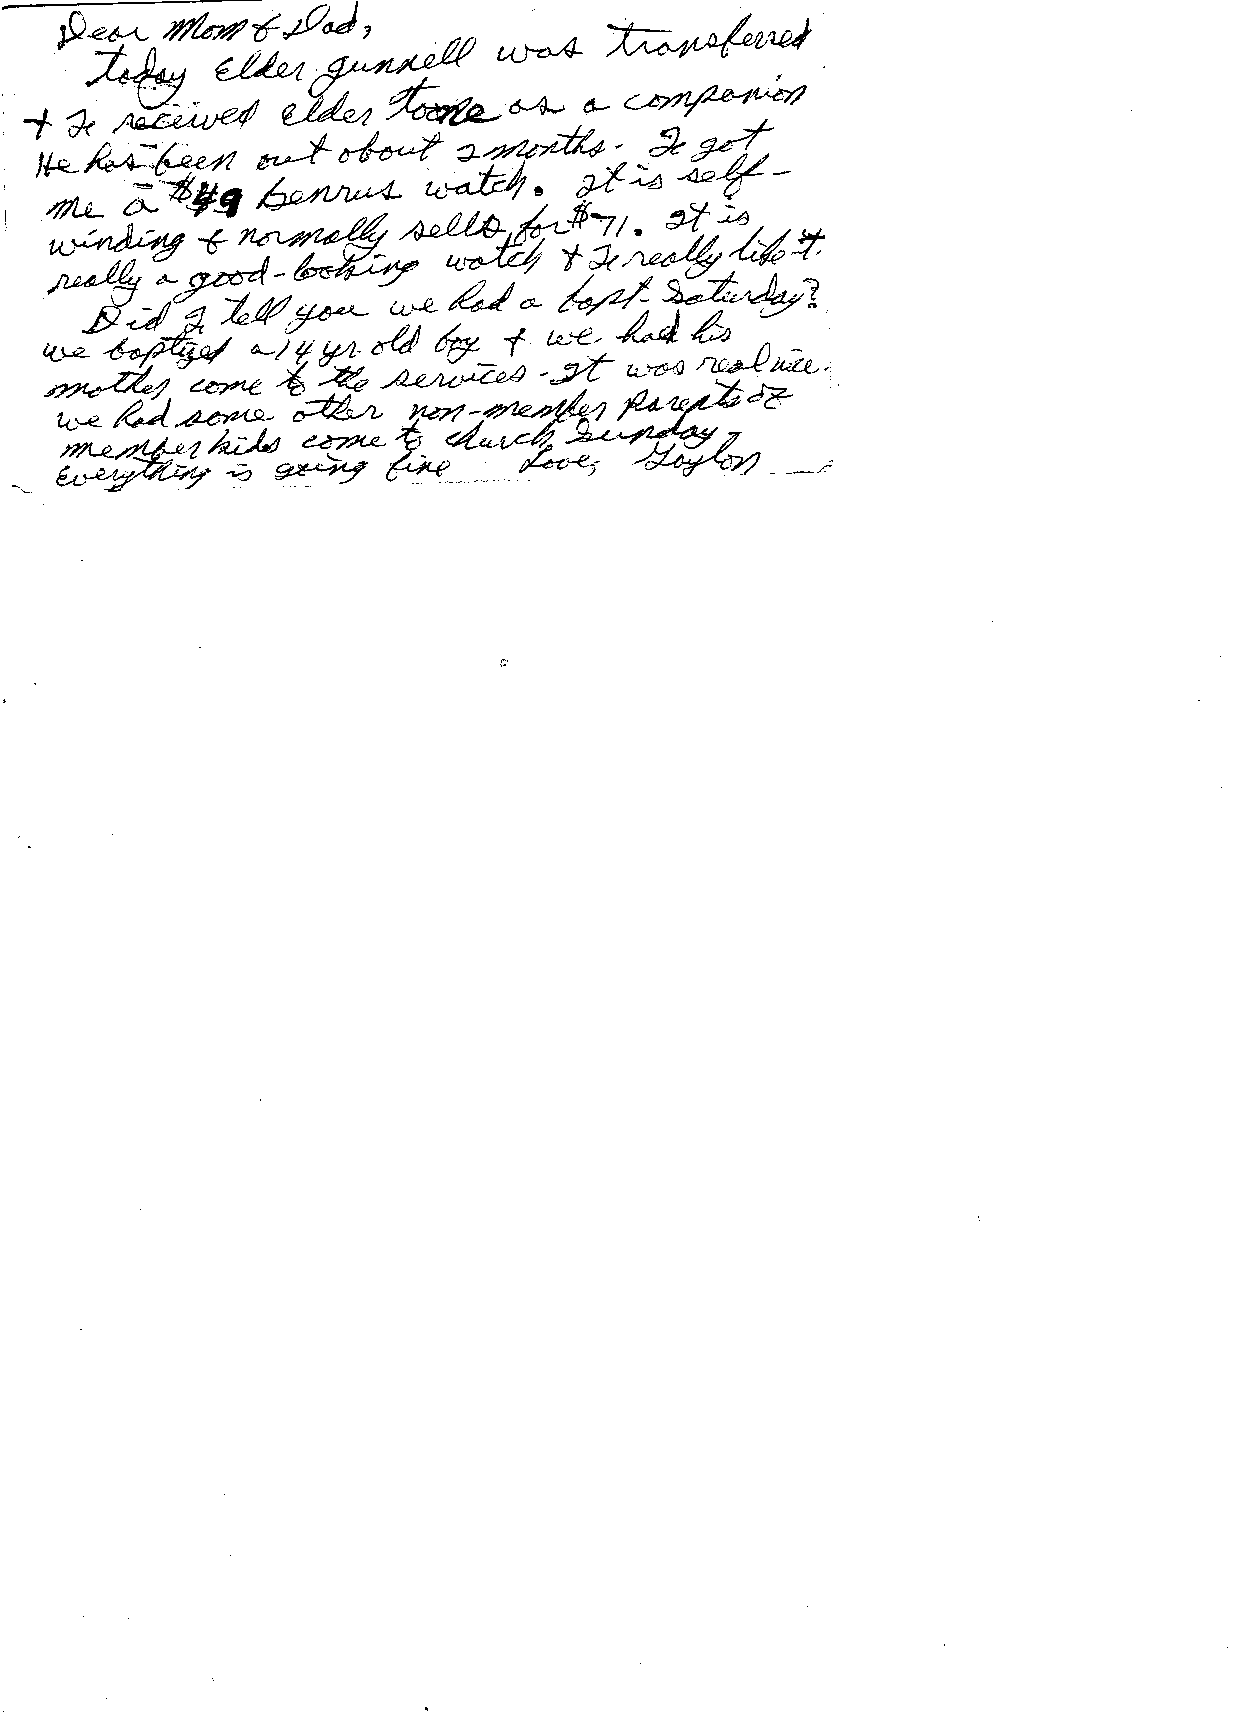 Dear Mom & Dad,
today Elder gunnell was transferred
+ I received elder Toone as a companion
He has been out about 2 months. I got
me a $49 benrus watch. It is self-
winding & normally sells for $71. It is
really a good-looking watch + I really like it.
Did I tell you we had a bapt. Saturday?
we baptized a 14 yr. old boy + we had his
mother come to the services - It was real nice.
we had some other non-member parents of
member kids come to church Sunday.
Everything is going fine Love, Gaylon